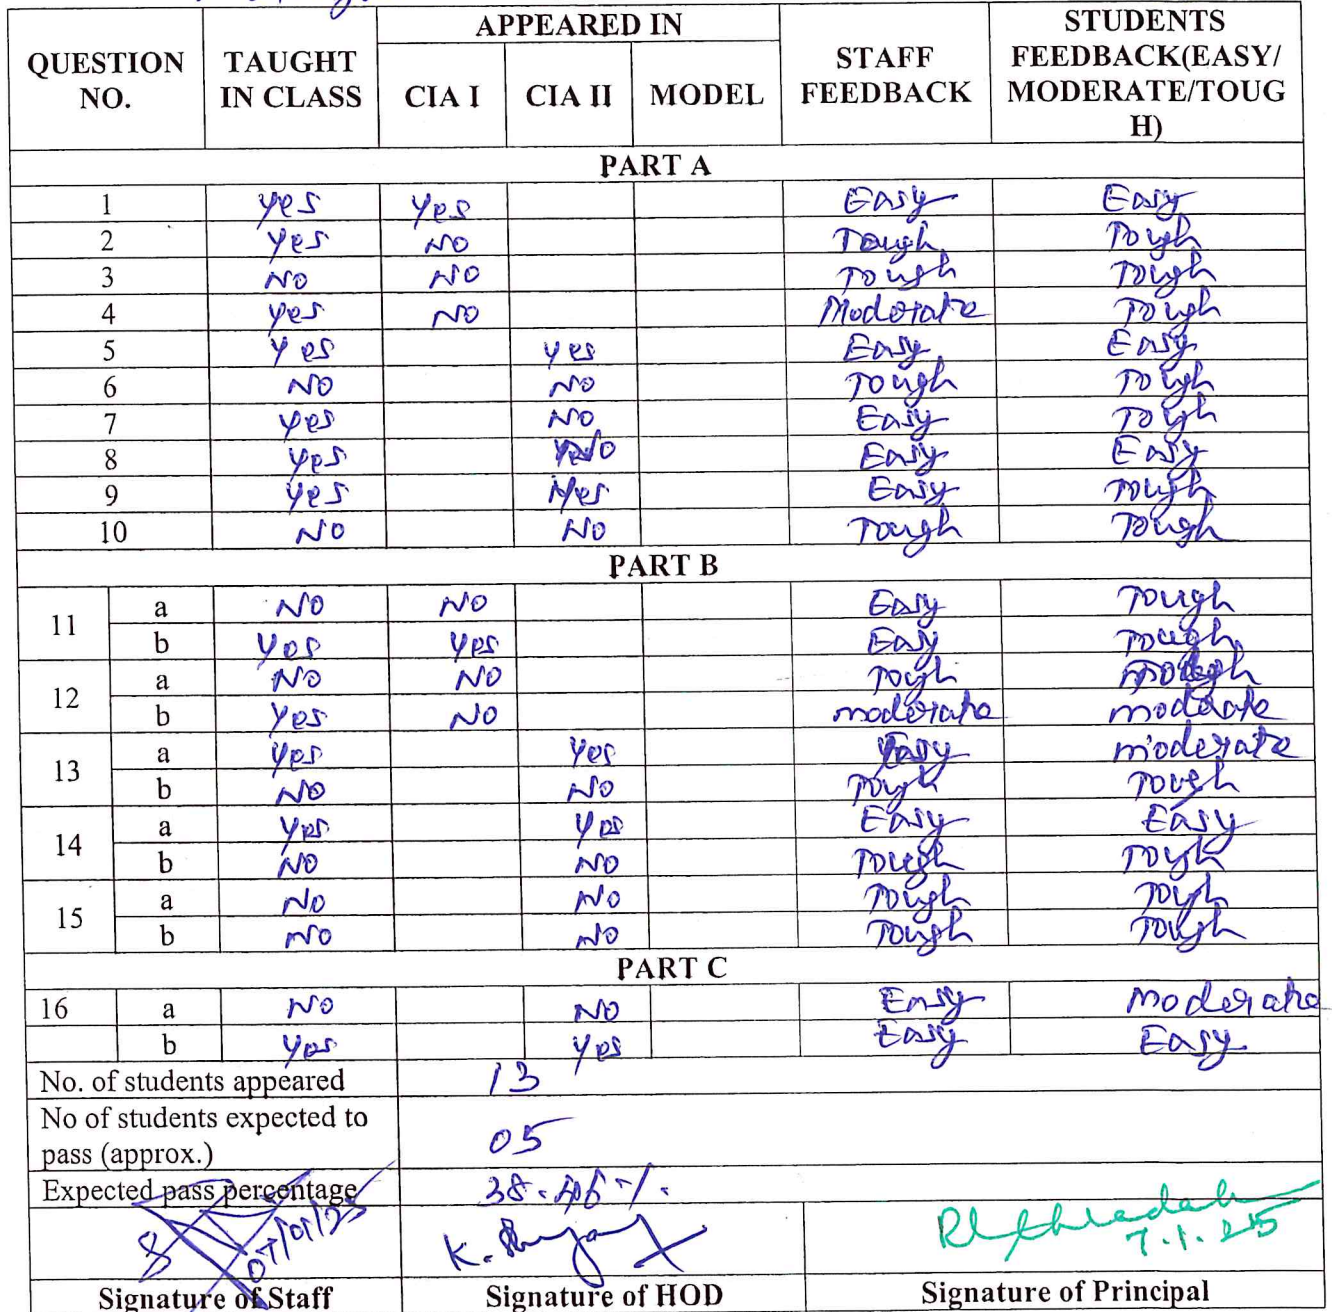 QUESTION NO. TAUGHT IN CLASS APPEARED IN STAFF FEEDBACK STUDENTS FEEDBACK(EASY/MODERATE/TOUGH)
CIA I CIA II MODEL
PART A
1 Yes Yes Easy Easy
2 Yes NO Tough Tough
3 NO NO Tough Tough
4 Yes NO Moderate Tough
5 Yes Yes Easy Easy
6 NO NO Tough Tough
7 Yes NO Easy Tough
8 Yes No Easy Easy
9 Yes Yes Easy Tough
10 NO NO Tough Tough
PART B
11 a NO NO Easy Tough
b Yes Yes Easy Tough
12 a NO NO Tough Tough
b Yes NO moderate moderate
13 a Yes Yes Easy moderate
b NO NO Tough Tough
14 a Yes Yes Easy Easy
b NO NO Tough Tough
15 a NO NO Tough Tough
b NO NO Tough Tough
PART C
16 a NO NO Easy Moderate
b Yes Yes Easy Easy
No. of students appeared 13
No of students expected to
pass (approx.) 05
Expected pass percentage 38.46 %
07/01/25 K. 7.1.25
Signature of Staff Signature of HOD Signature of Principal